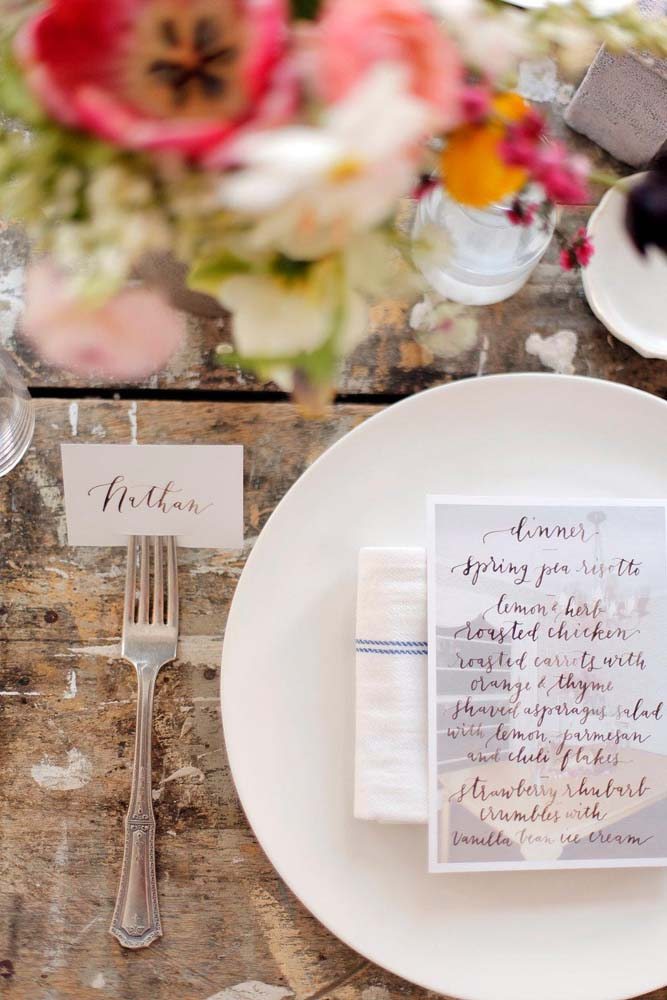 Nathan
dinner
spring pea risotto
lemon & herb
roasted chicken
roasted carrots with
orange & thyme
shaved asparagus salad
with lemon, parmesan
and chili flakes
strawberry rhubarb
crumbles with
vanilla bean ice cream